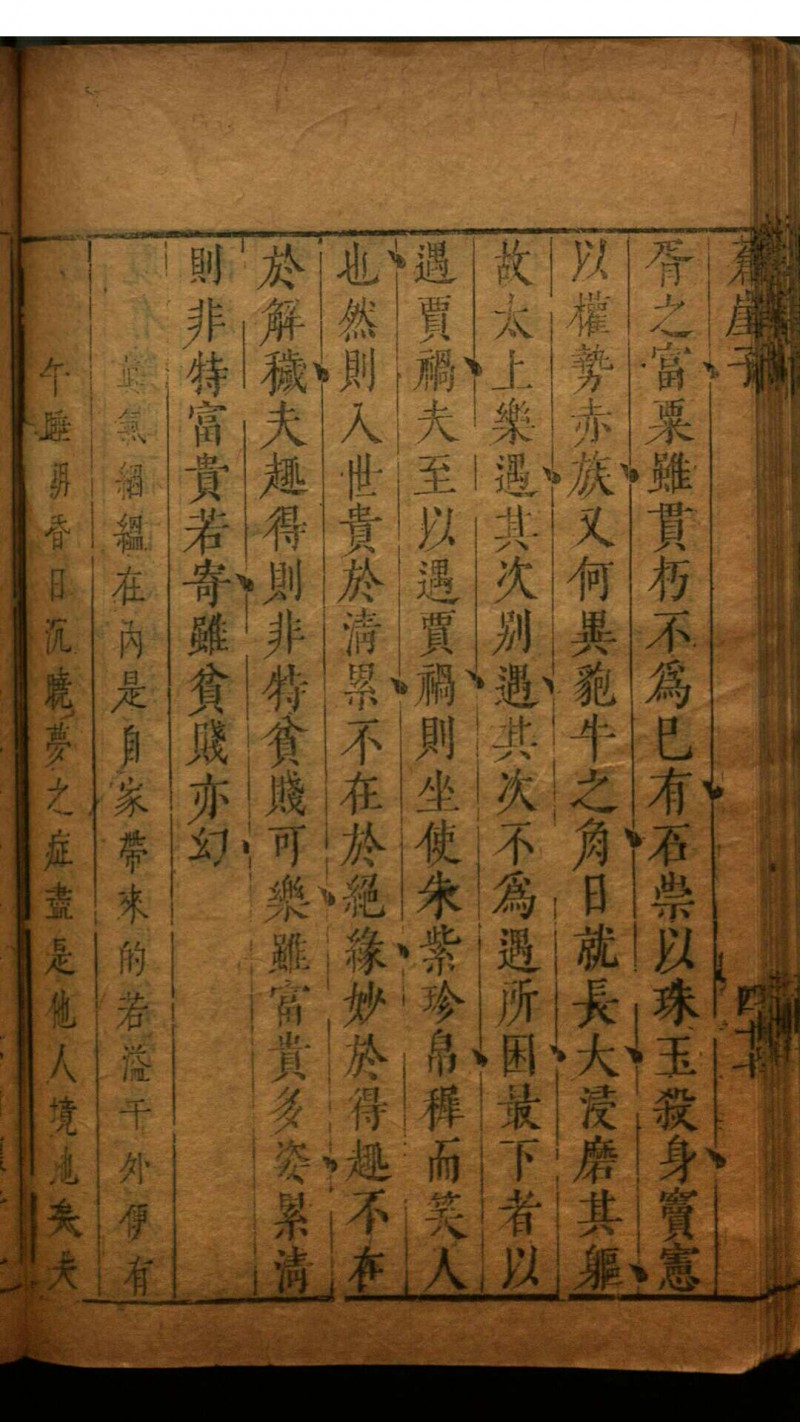 蒼崖子
四十
胥之富粟雖貫朽不爲已有石崇以珠玉殺身竇憲
以權勢赤族又何異豞牛之角日就長大浸磨其軀
故太上樂遇其次别遇其次不爲遇所困最下者以
遇賈禍夫至以遇賈禍則坐使朱紫珍帛穉而笑人
也然則入世貴於淸累不在於絕緣妙於得趣不在
於解穢夫趣得則非特貧賤可樂雖富貴多姿累淸
則非特富貴若寄雖貧賤亦幻
氣絪縕在內是自家帶來的若溢于外便有
午睡 香日沉曉夢之症盡是他人境地矣夫